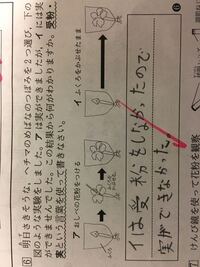 6 明日さきそうな、ヘチマのめばなのつぼみを2つ選び、下の
図のような実験をしました。アは実ができましたが、イは実
ができませんでした。この結果から何がわかりますか。受粉・
実という言葉を使って書きなさい。
ア おしべの花粉をつける
イ ふくろをかぶせたまま
イは受粉をしなかったので
実ができなかった。
7 けんび鏡を使って花粉を観察